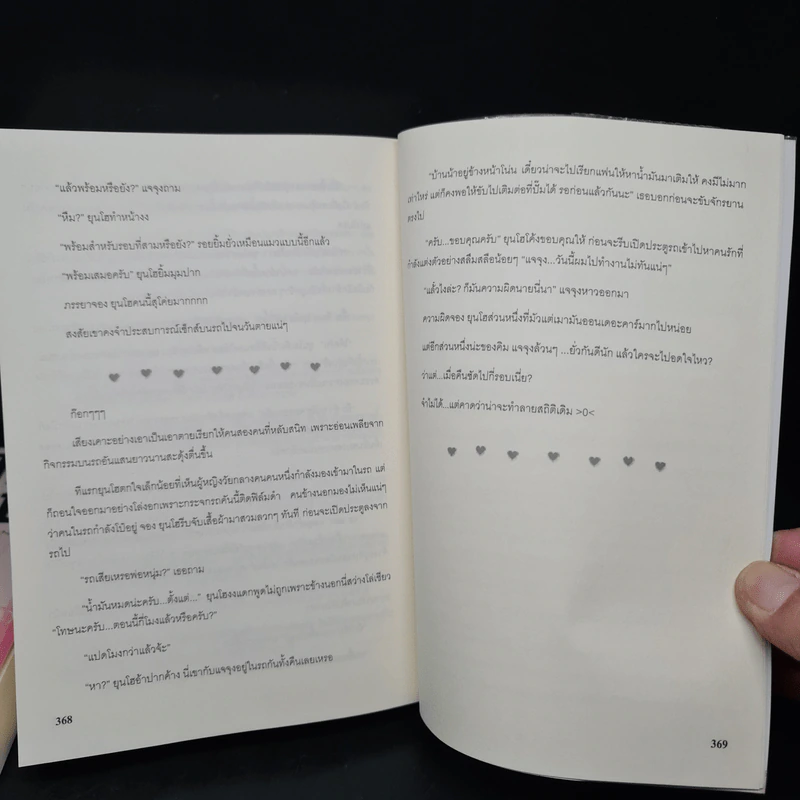 "แล้วพร้อมหรือยัง?" แจจุงถาม
"หืม?" ยุนโฮทำหน้างง
"พร้อมสำหรับรอบที่สามหรือยัง?" รอยยิ้มยั่วเหมือนแมวแบบนี้อีกแล้ว
"พร้อมเสมอครับ" ยุนโฮยิ้มมุมปาก
ภรรยาจอง ยุนโฮคนนี้สุโค่ยมากกกก
สงสัยเขาคงจำประสบการณ์เซ็กส์บนรถไปจนวันตายแน่ๆ
ก๊อกๆๆๆ
เสียงเคาะอย่างเอาเป็นเอาตายเรียกให้คนสองคนที่หลับสนิท เพราะอ่อนเพลียจาก
กิจกรรมบนรถอันแสนยาวนานสะดุ้งตื่นขึ้น
ทีแรกยุนโฮตกใจเล็กน้อยที่เห็นผู้หญิงวัยกลางคนคนหนึ่งกำลังมองเข้ามาในรถ แต่
ก็ถอนใจออกมาอย่างโล่งอกเพราะกระจกรถคันนี้ติดฟิล์มดำ คนข้างนอกมองไม่เห็นแน่ๆ
ว่าคนในรถกำลังโป๊อยู่ จอง ยุนโฮรีบจับเสื้อผ้ามาสวมลวกๆ ทันที ก่อนจะเปิดประตูลงจาก
รถไป
"รถเสียเหรอพ่อหนุ่ม?" เธอถาม
"น้ำมันหมดน่ะครับ...ตั้งแต่..." ยุนโฮงงแดกพูดไม่ถูกเพราะข้างนอกนี่สว่างโล่เชียว
"โทษนะครับ...ตอนนี้กี่โมงแล้วหรือครับ?"
"แปดโมงกว่าแล้วจ้ะ"
"หา?" ยุนโฮอ้าปากค้าง นี่เขากับแจจุงอยู่ในรถกันทั้งคืนเลยเหรอ
368
"บ้านน้าอยู่ข้างหน้าโน่น เดี๋ยวน่าจะไปเรียกแฟนให้หาน้ำมันมาเติมให้ คงมีไม่มาก
เท่าไหร่ แต่ก็คงพอให้ขับไปเติมต่อที่ปั๊มได้ รอก่อนแล้วกันนะ" เธอบอกก่อนจะขับจักรยาน
ตรงไป
"ครับ...ขอบคุณครับ" ยุนโฮโค้งขอบคุณให้ ก่อนจะรีบเปิดประตูรถเข้าไปหาคนรักที่
กำลังแต่งตัวอย่างสลึมสลือน้อยๆ "แจจุง...วันนี้ผมไปทำงานไม่ทันแน่ๆ"
"แล้วไงล่ะ? ก็มันความผิดนายนี่นา" แจจุงหาวออกมา
ความผิดจอง ยุนโฮส่วนหนึ่งที่มัวแต่เมามันออนเดอะคาร์มากไปหน่อย
แต่อีกส่วนหนึ่งน่ะของคิม แจจุงล้วนๆ ...ยั่วกันดีนัก แล้วใครจะไปอดใจไหว?
ว่าแต่...เมื่อคืนซัดไปกี่รอบเนี่ย?
จำไม่ได้...แต่คาดว่าน่าจะทำลายสถิติเดิม >0<
369